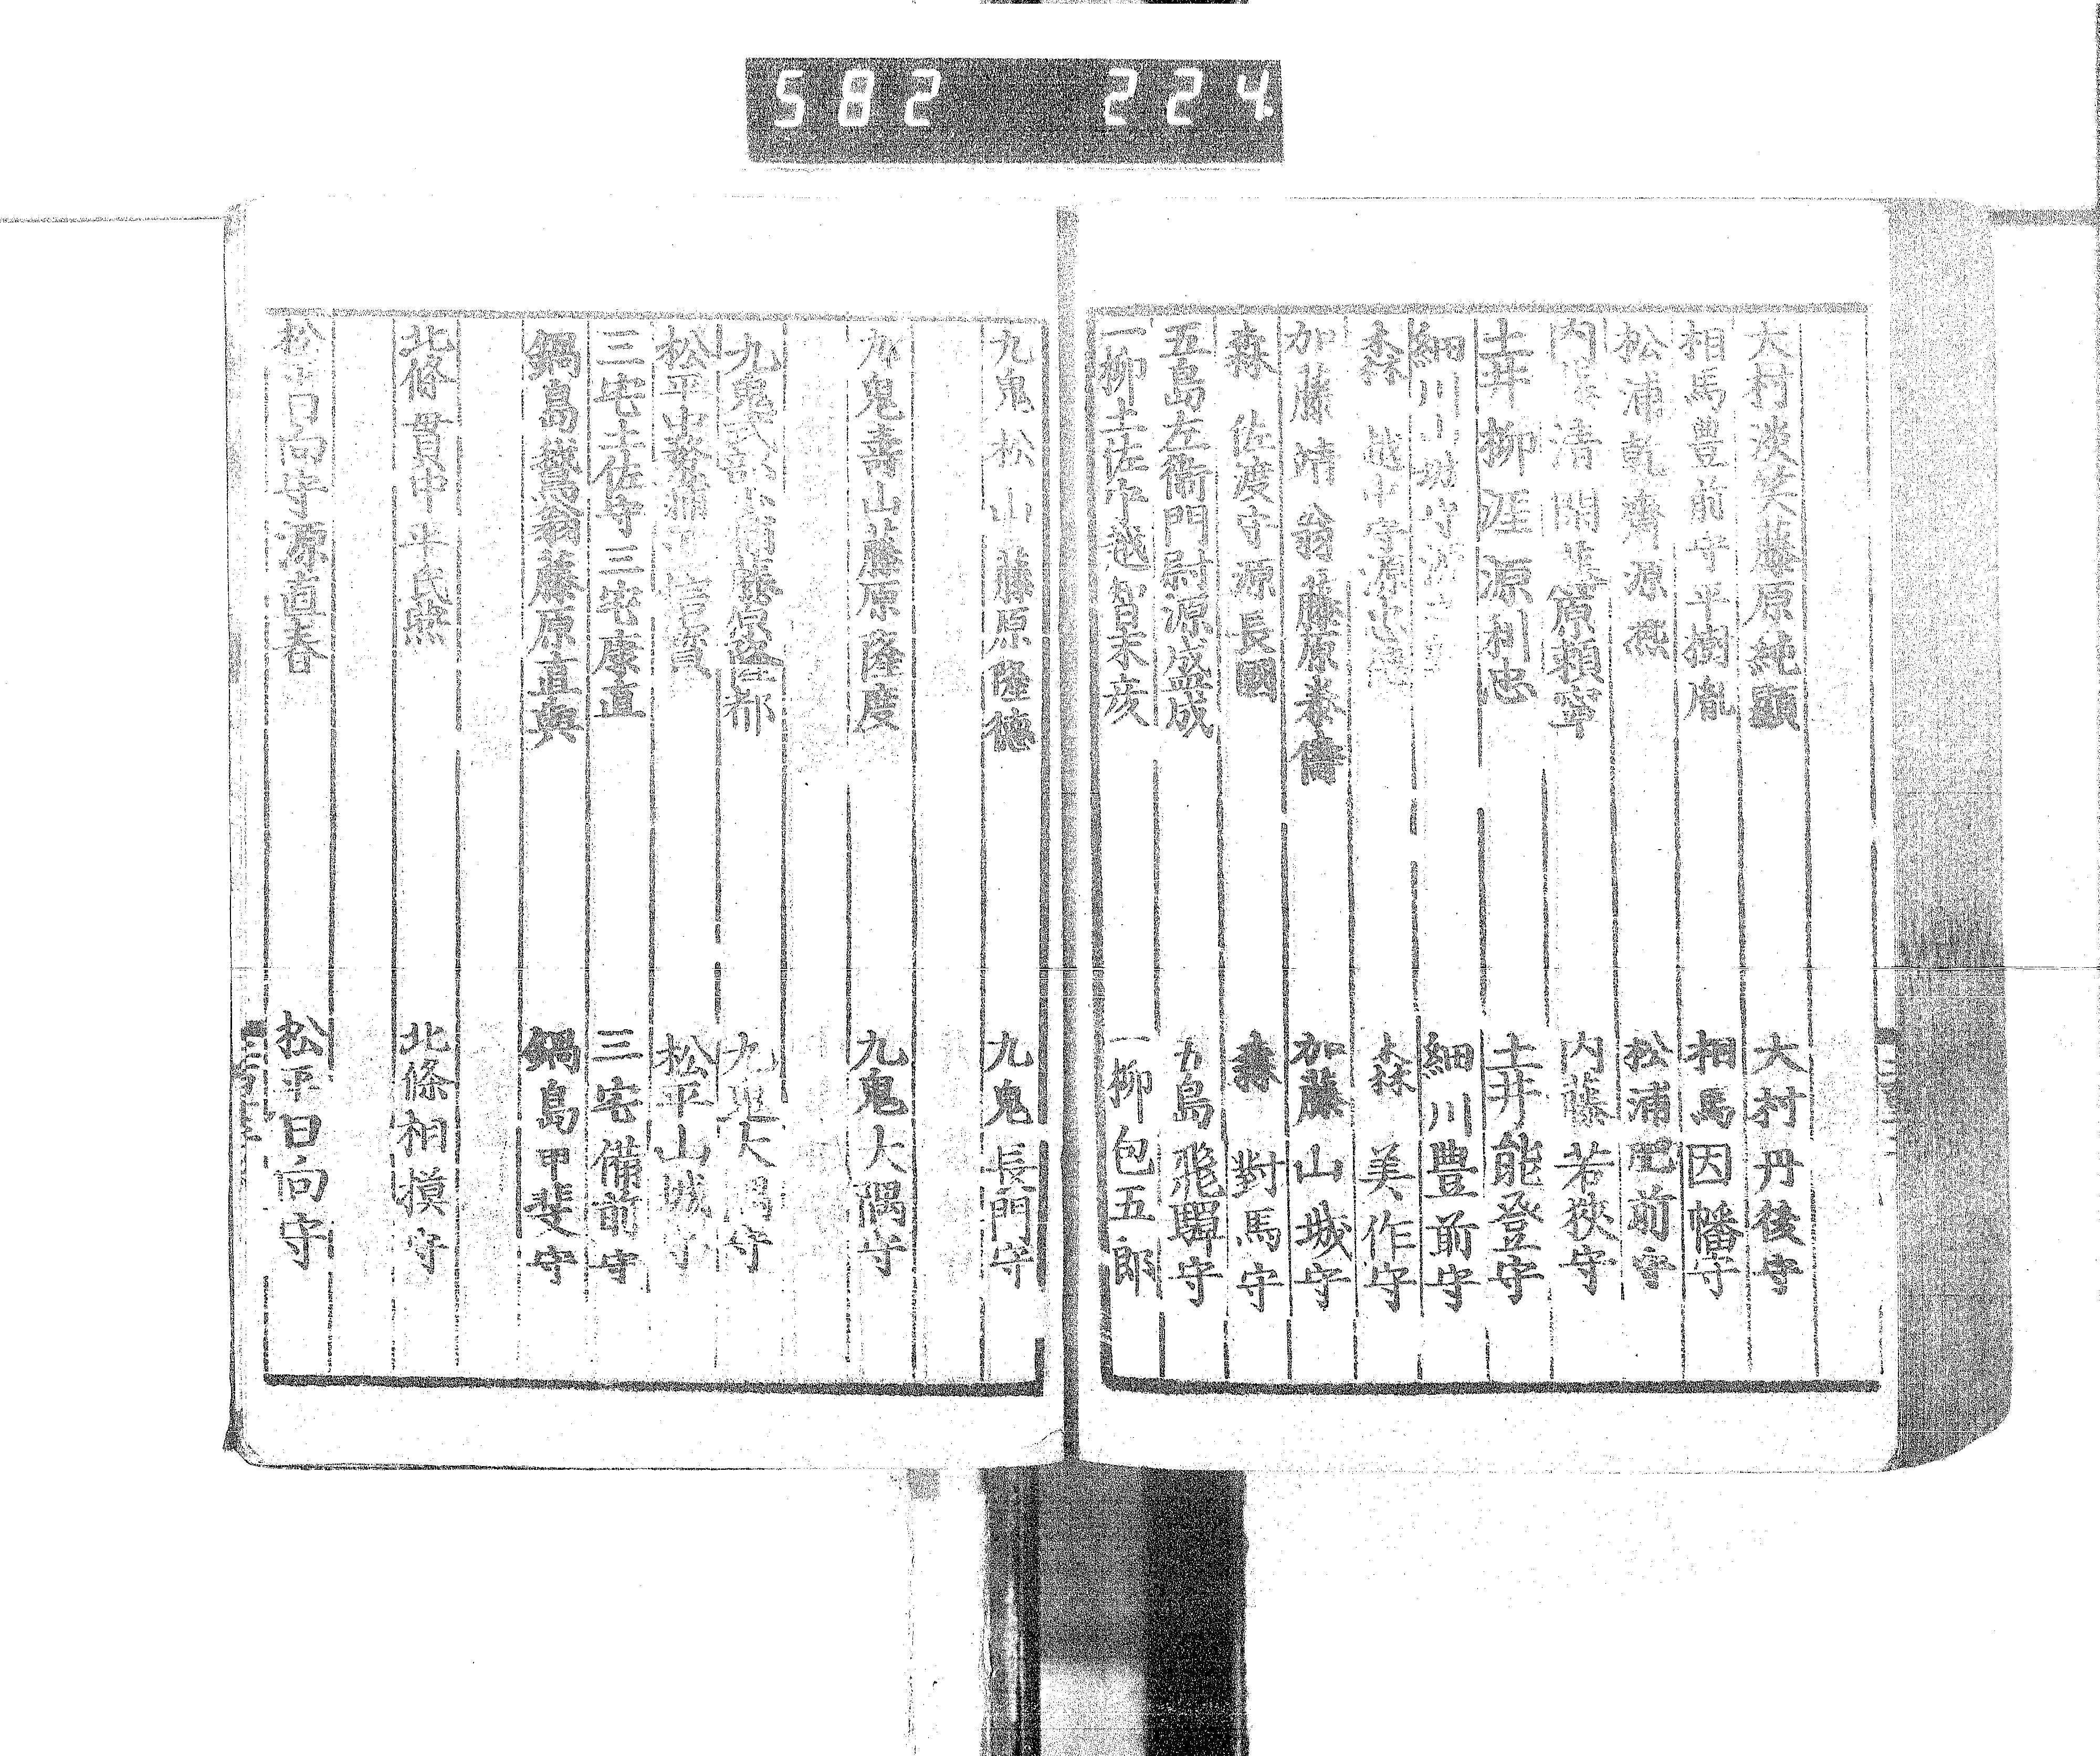 582 224
大村淡笑藤原純顯 大村丹後守
相馬豊前守平樹胤 相馬因幡守
松浦乾齋源熈 松浦肥前守
内藤清閑藤原頼寧 内藤若狹守
土井柳涯源利忠 土井能登守
細川山城守 細川豊前守
森越中守源忠徳 森美作守
加藤靖翁藤原泰儔 加藤山城守
森佐渡守源長國 森對馬守
五島左衞門尉源盛成 五島飛驒守
一柳土佐守越智末彦 一柳包五郎
九鬼松山藤原隆徳 九鬼長門守
九鬼壽山藤原隆度 九鬼大隅守
九鬼式部少輔藤原隆都 九鬼大隅守
松平中務 輔 信寶 松平山城守
三宅土佐守三宅康直 三宅備前守
鍋島鷺翁藤原直與 鍋島甲斐守
北條貫中平氏燕 北條相摸守
松平日向守源直春 松平日向守